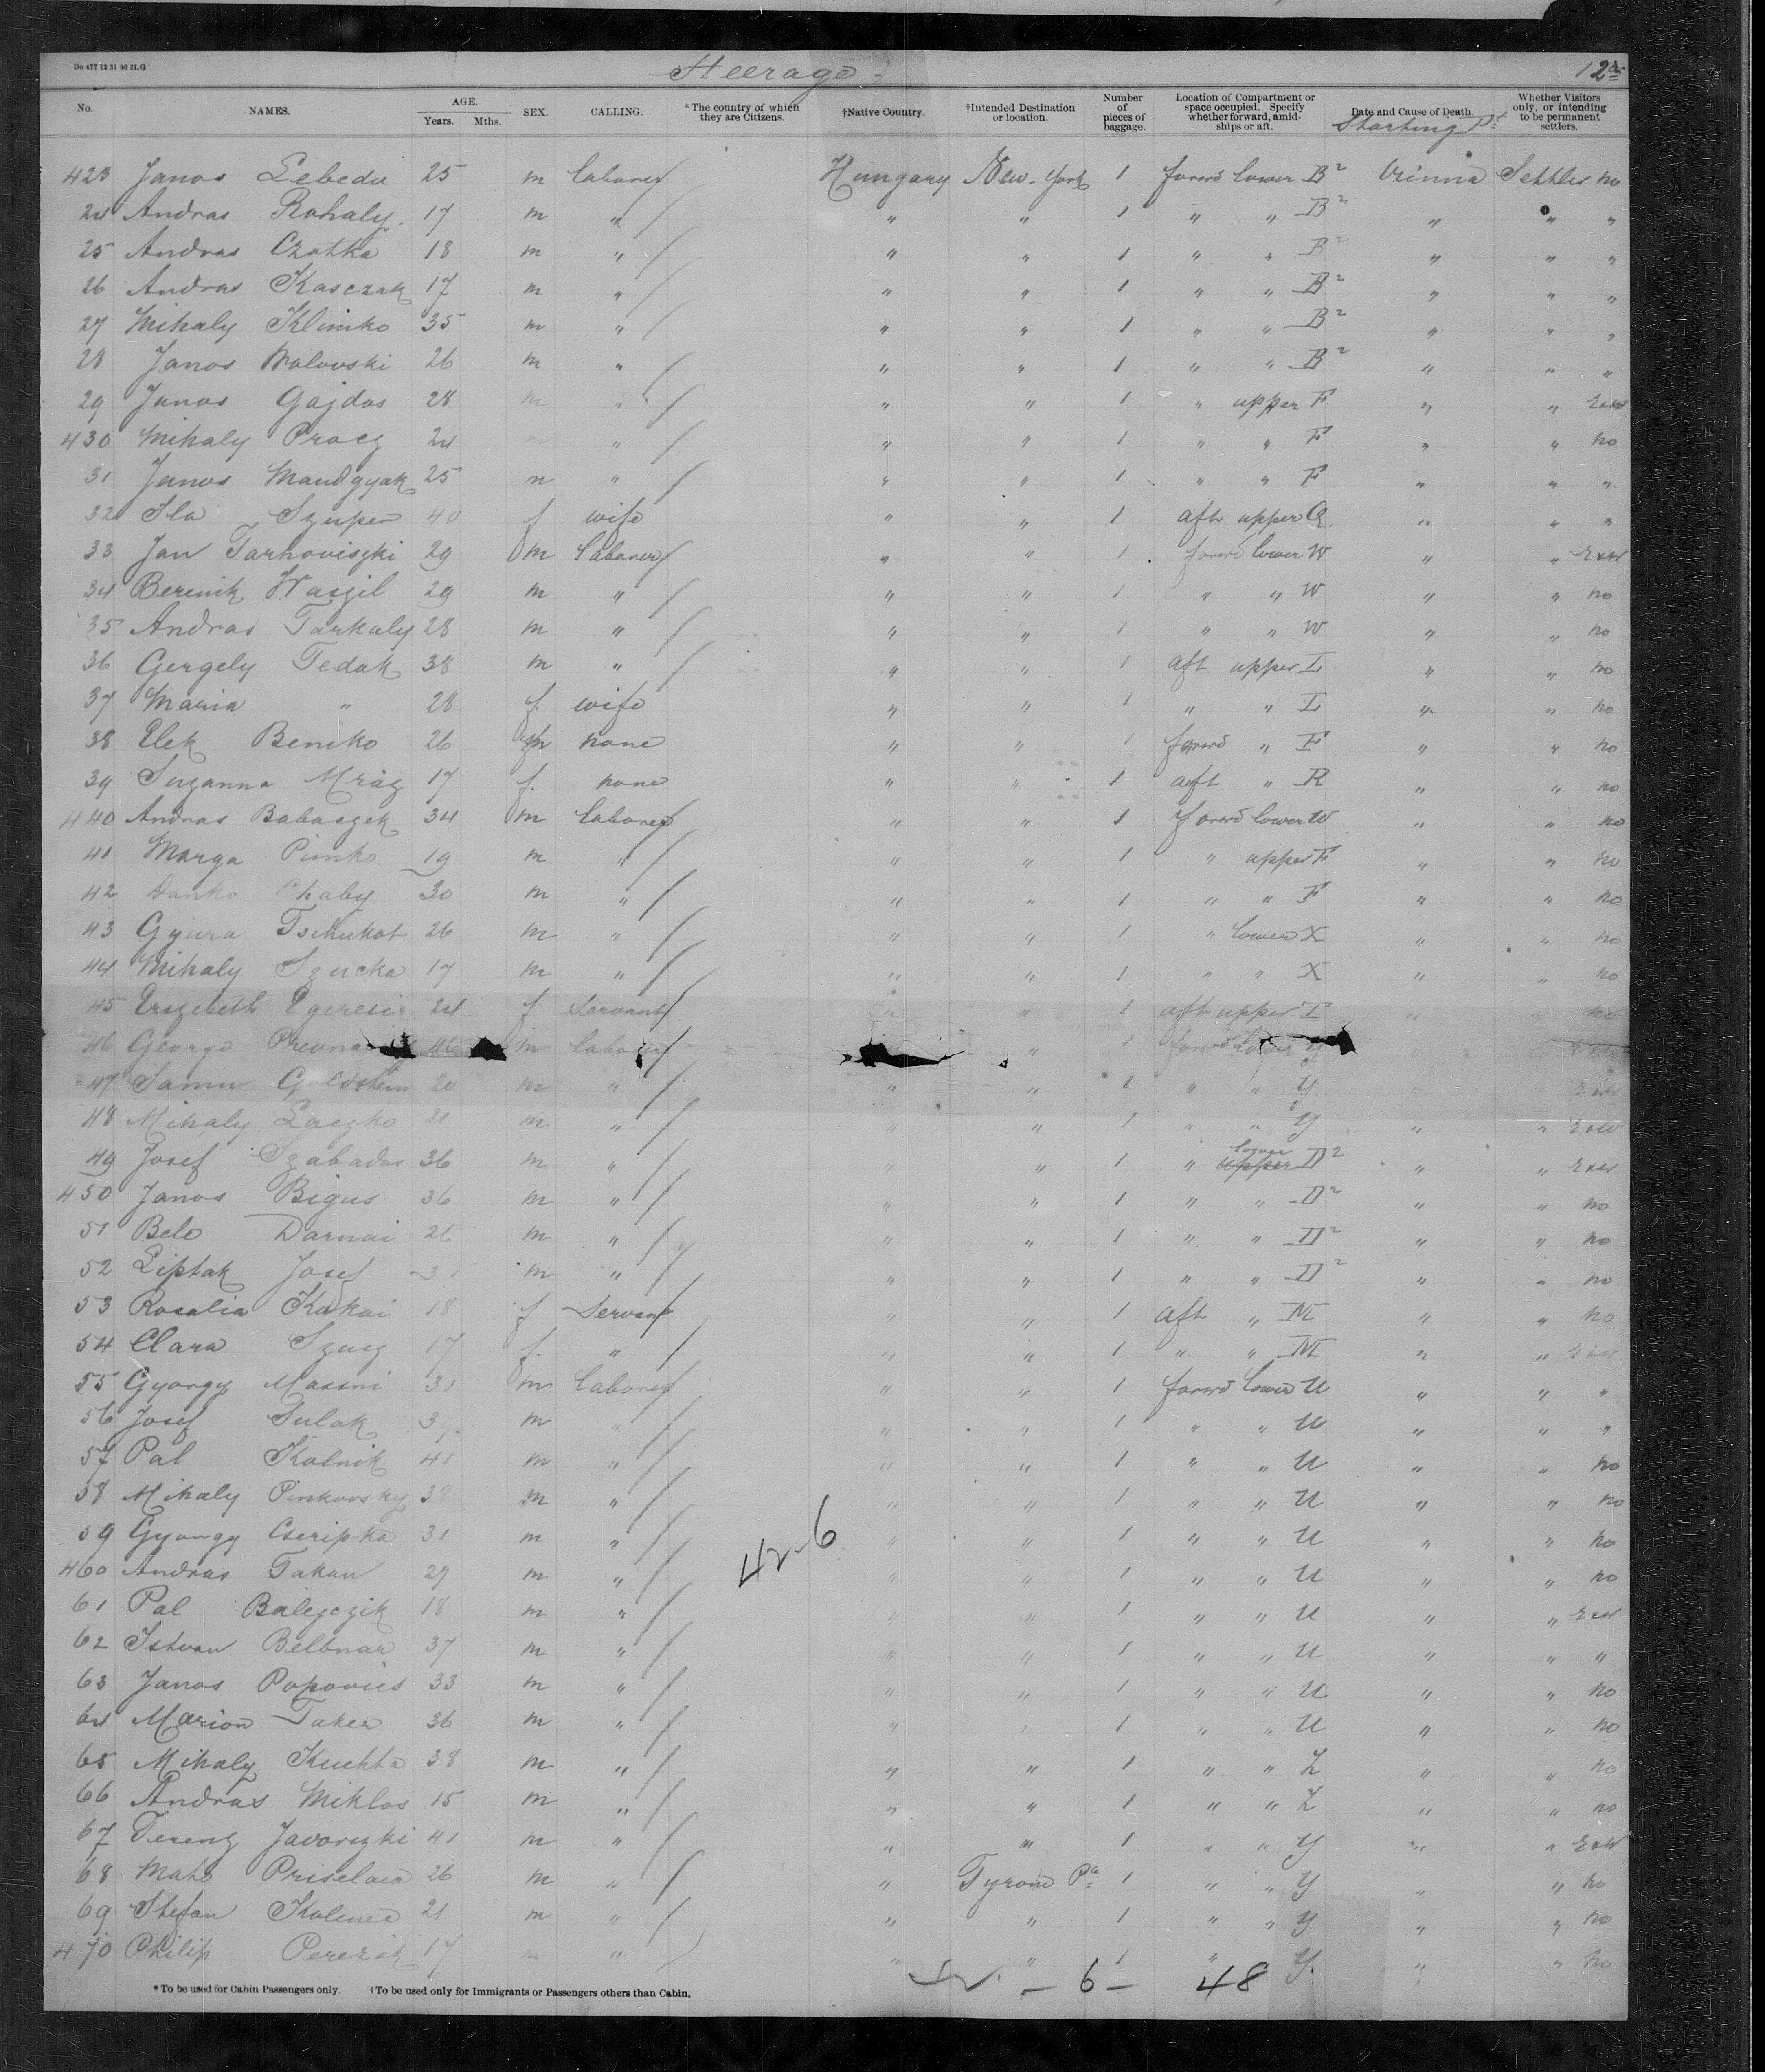 Do 477 12 31 90 2LG
Steerage
12
No. NAMES. AGE. Years. Mths. SEX. CALLING. *The country of which they are Citizens. †Native Country. †Intended Destination or location. Number of pieces of baggage. Location of Compartment or space occupied. Specify whether forward, amidships or aft. Date and Cause of Death. Whether Visitors only, or intending to be permanent settlers.
Starting Pt
423 Janos Lebeda 25 m laborer Hungary New-York 1 forwd lower B2 Vienna Settler no
24 Andras Rohaly 17 m " " " 1 " " B2 " " "
25 Andras Czatka 18 m " " " 1 " " B2 " " "
26 Andras Kasczak 17 m " " " 1 " " B2 " " "
27 Mihaly Klimko 35 m " " " 1 " " B2 " " "
28 Janos Malovski 26 m " " " 1 " " B2 " " "
29 Janos Gajdos 28 m " " " 1 " upper F " "
430 Mihaly Procz 24 m " " " 1 " " F " " no
31 Janos Mandgyak 25 m " " " 1 " " F " " "
32 Ila Szuper 40 f wife " " 1 aft upper Q " " "
33 Jan Tarnoviszki 29 m laborer " " 1 forwd lower W " "
34 Berenik Waszil 29 m " " " 1 " " W " " no
35 Andras Tarkaly 28 m " " " 1 " " W " " no
36 Gergely Tedak 38 m " " " 1 aft upper L " " no
37 Maria " 28 f wife " " 1 " " L " " no
38 Elek Beniko 26 m none " " 1 forwd " F " " no
39 Suzanna Mráz 17 f. none " " 1 aft " R " " no
440 Andras Babaszek 34 m laborer " " 1 forwd lower W " " no
41 Marga Pimko 19 m " " " 1 " upper F " " no
42 Danko Chaby 30 m " " " 1 " " F " " no
43 Gyura Tschukot 26 m " " " 1 " lower X " " no
44 Mihaly Szucka 17 m " " " 1 " " X " " no
45 Erszebeth Egeresi 24 f servant " " 1 aft upper I " " no
46 George 46 m laborer " 1 forwd lower Y
47 Samu Goldstein 20 m " " " 1 " " Y
48 Mihaly Laczko 21 m " " " 1 " " Y " "
49 Josef Szabados 36 m " " " 1 " lower upper D2 " "
450 Janos Bigus 36 m " " " 1 " " D2 " " no
51 Bela Darnai 26 m " " " 1 " " D2 " " no
52 Liptak Josef 31 m " " " 1 " " D2 " " no
53 Rosalia Kakai 18 f Servant " " 1 aft " M " " no
54 Clara Szucz 17 f. " " " 1 " " M " "
55 Gyorgy Massni 31 m laborer " " 1 forwd lower U " " "
56 Josef Sulak m " " " 1 " " U " " "
57 Pal Kolnik 41 m " " " 1 " " U " " no
58 Mihaly Pinkovsky 38 m " " " 1 " " U " " no
59 Gyorgy Cseripka 31 m " " " 1 " " U " " no
42-6
460 Andras Takan 29 m " " " 1 " " U " " no
61 Pal Balejczik 18 m " " " 1 " " U " "
62 Istvan Belbnar 37 m " " " 1 " " U " " "
63 Janos Popovics 33 m " " " 1 " " U " " no
64 Marion Taker 36 m " " " 1 " " U " " no
65 Mihaly Kuchta 38 m " " " 1 " " Z " " no
66 Andras Miklos 15 m " " " 1 " " Z " " no
67 Ferenz Javorszki 41 m " " " 1 " " Y " "
68 Mate 26 m " " Tyrone Pa 1 " " Y " " no
69 Stefan 21 m " " " 1 " " Y " " no
470 Philip 17 m " " " 1 " Y. " " no
- 6 - 48
*To be used for Cabin Passengers only. †To be used only for Immigrants or Passengers others than Cabin.